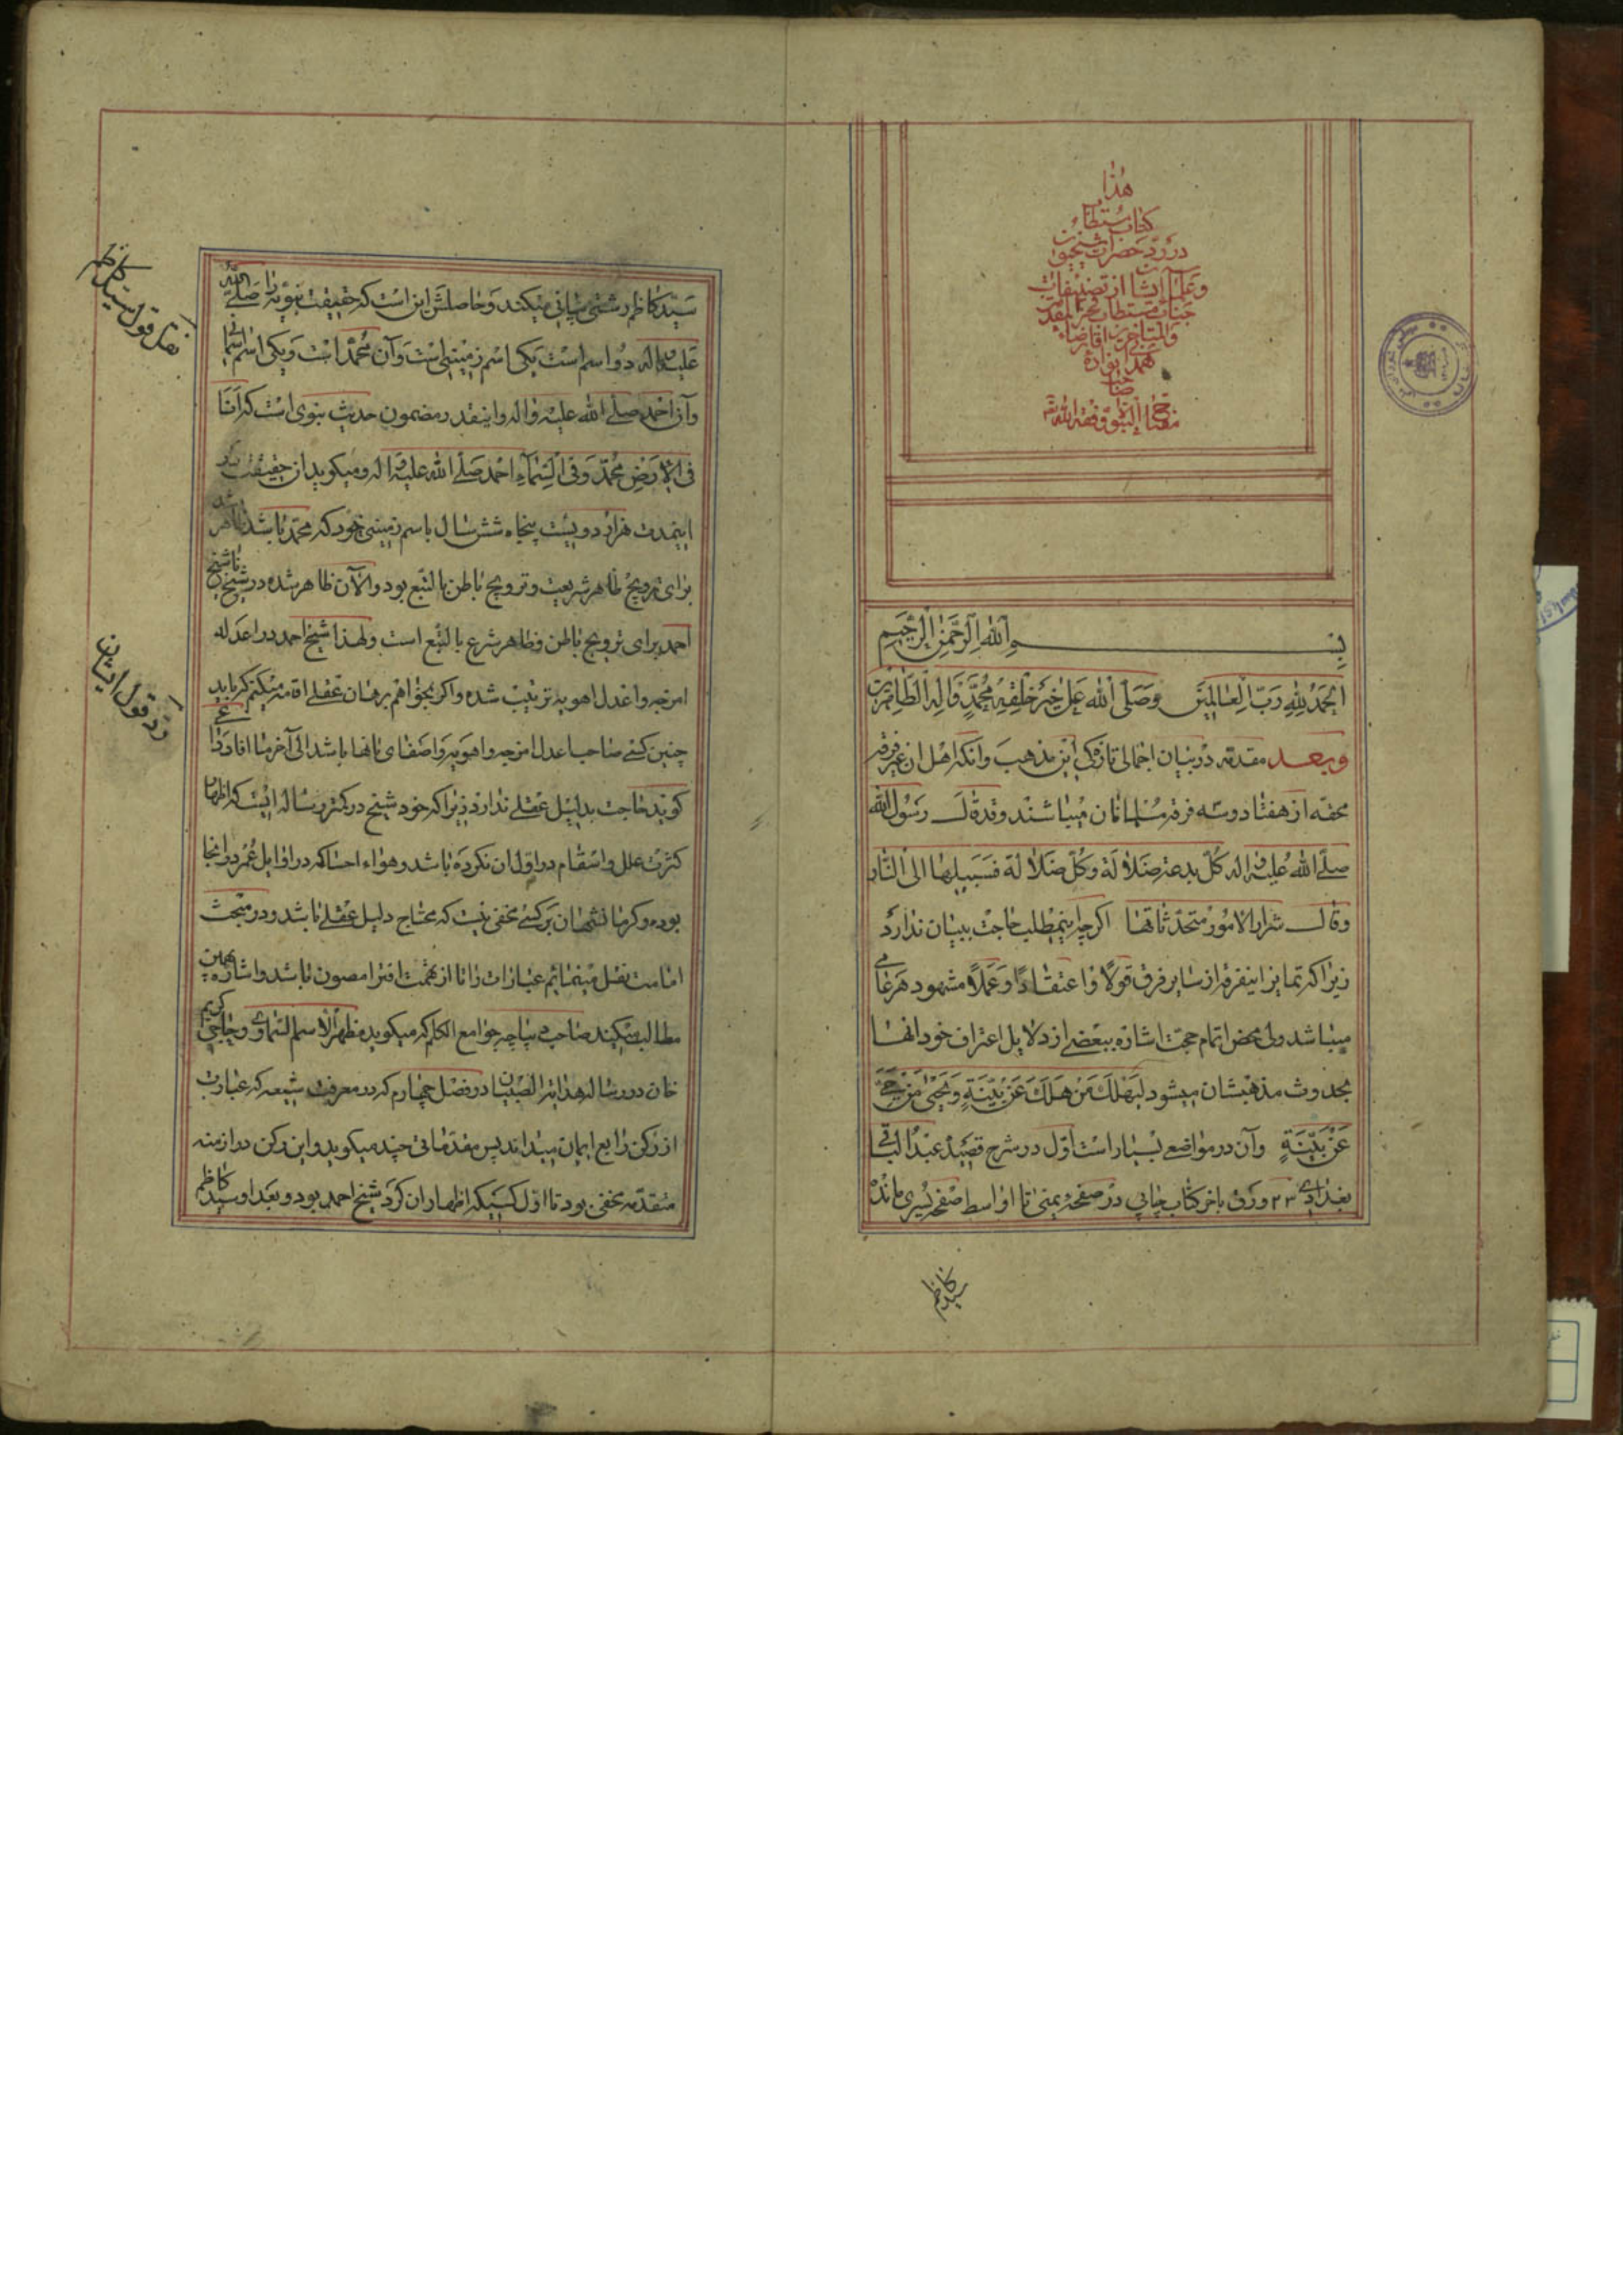 هذا
کتاب مستطاب
در رد حضرات شیخیه
و علمآء ایشان از تصنیفات
جناب مستطاب فخر المقدمین
و المتأخرین آقا رضاء
همدانی زاده
صاحب
مفتاح النبوة وفقه الله
بسم الله الرحمن الرحیم
الحمد لله رب العالمین وصلی الله علی خیر خلقه محمد واله الطاهرین
وبعد مقدمه در بیان اجمالی تازکی این مذهب وانکه اهل ان غیر فرقه
محقه از هفتاد وسه فرقه مسلمانان میباشند وقد قال رسول الله
صلی الله علیه واله کل بدعة ضلالة وکل ضلالة فسبیلها الی النار
وقال شرار الامور محدثاتها اکرچه اینمطلب حاجت ببیان ندارد
زیرا که تمایز اینفرقه از سایر فرق قولا واعتقادا وعملا مشهود هر عامی
میباشد ولی محض اتمام حجت اشاره ببعضی از دلایل اعتراف خود انها
بحدوث مذهبشان میشود لیهلک من هلک عن بینة ویحیی من حی
عن بینة وآن در مواضع بسیار است اول در شرح قصیده عبد الباقی
بغدادی ۲۳ ورق باخر کتاب چاپی در صفحه یمنی تا اواسط صفحه یسری مانده
سید کاظم
سید کاظم رشتی بیانی میکند وحاصلش این است که حقیقت نبویه را صلی الله
علیه واله دو اسم است یکی اسم زمینی است وآن محمد است ویکی اسم اسمانی
وآن احمد صلی الله علیه واله واینقدر مضمون حدیث نبوی است که انا
فی الارض محمد وفی السماء احمد صلی الله علیه واله ومیکوید از حقیقت
اینمدت هزار دویست پنجاه شش سال باسم زمینی خود که محمد باشد ظاهر
برای ترویج ظاهر شریعت وترویج باطن بالتبع بود والآن ظاهر شده در شیخ
احمد برای ترویج باطن وظاهر شرع بالتبع است ولهذا شیخ احمد در اعدله
امزجه واعدل اهویه تربیت شده واکر بخواهم برهان عقلی اقامه میکنم که باید
چنین کسی صاحب اعدل امزجه واهویه واصفای انها باشد الی آخر ما افاد
کوید حاجت بدلیل عقلی ندارد زیرا که خود شیخ در کمتر رساله ایست که اظهار
کثرت علل واسقام در اول ان نکرده باشد وهواء احسا که در اوایل عمر در انجا
بوده وکرمانشهان برکسی مخفی نیست که محتاج دلیل عقلی باشد ودر مبحث
امامت نقل مینمایم عبارات را تا از تهمت افترا مصون باشد واشاره بهمین
مطالب میکند صاحب دیباچه جوامع الکلم که میکوید مظهرا لاسم السماوی وحاجی کریم
خان در رساله هدایة الصبیان در فصل چهارم که در معرفت شیعه که عبارت
از رکن رابع ایمان میداند پس مقدماتی چند میکوید واین رکن در ازمنه
متقدمه مخفی بود تا اول کسیکه اظهار ان کرد شیخ احمد بود وبعد او سید کاظم
نقل قول سید کاظم
رد قول ایشان